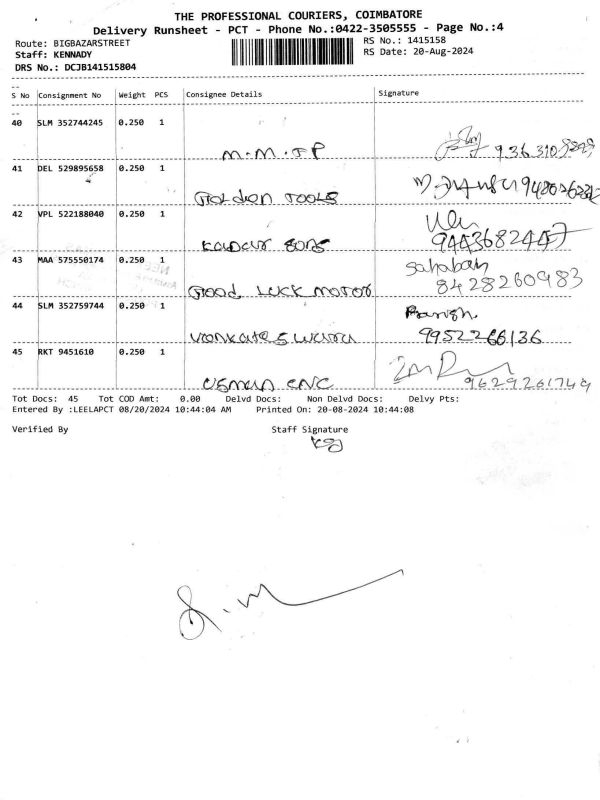 THE PROFESSIONAL COURIERS, COIMBATORE
Delivery Runsheet - PCT - Phone No.:0422-3505555 - Page No.:4
Route: BIGBAZARSTREET RS No.: 1415158
Staff: KENNADY RS Date: 20-Aug-2024
DRS No.: DCJB141515804
S No Consignment No Weight PCS Consignee Details Signature
40 SLM 352744245 0.250 1
M.M.JP
41 DEL 529895658 0.250 1
Goldion TOOLS
42 VPL 522188040 0.250 1
Sons 9443682447
43 MAA 575550174 0.250 1 Sahabah
Good LUCK motor 8428260983
44 SLM 352759744 0.250 1
Vonkateswara 9952266136
45 RKT 9451610 0.250 1
Usman CNC 9629261749
Tot Docs: 45 Tot COD Amt: 0.00 Delvd Docs: Non Delvd Docs: Delvy Pts:
Entered By :LEELAPCT 08/20/2024 10:44:04 AM Printed On: 20-08-2024 10:44:08
Verified By Staff Signature